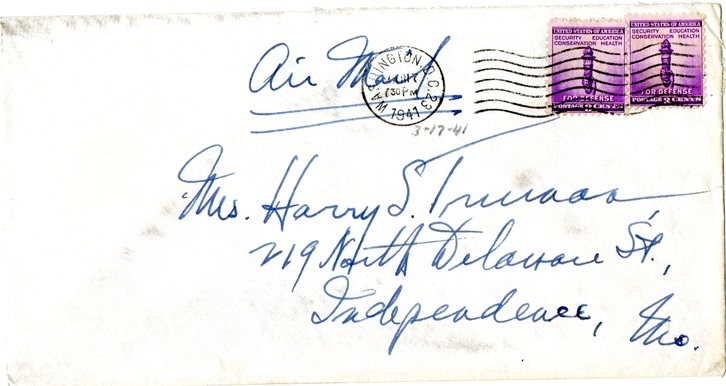 UNITED STATES OF AMERICA UNITED STATES OF AMERICA
SECURITY EDUCATION SECURITY EDUCATION
CONSERVATION HEALTH CONSERVATION HEALTH
FOR DEFENSE FOR DEFENSE
POSTAGE 3 CENTS POSTAGE 3 CENTS
Air Mail
WASHINGTON, D.C. 23
17
7 30 PM
1941
3-17-41
Mrs. Harry S. Truman
219 North Delaware St.,
Independence, Mo.